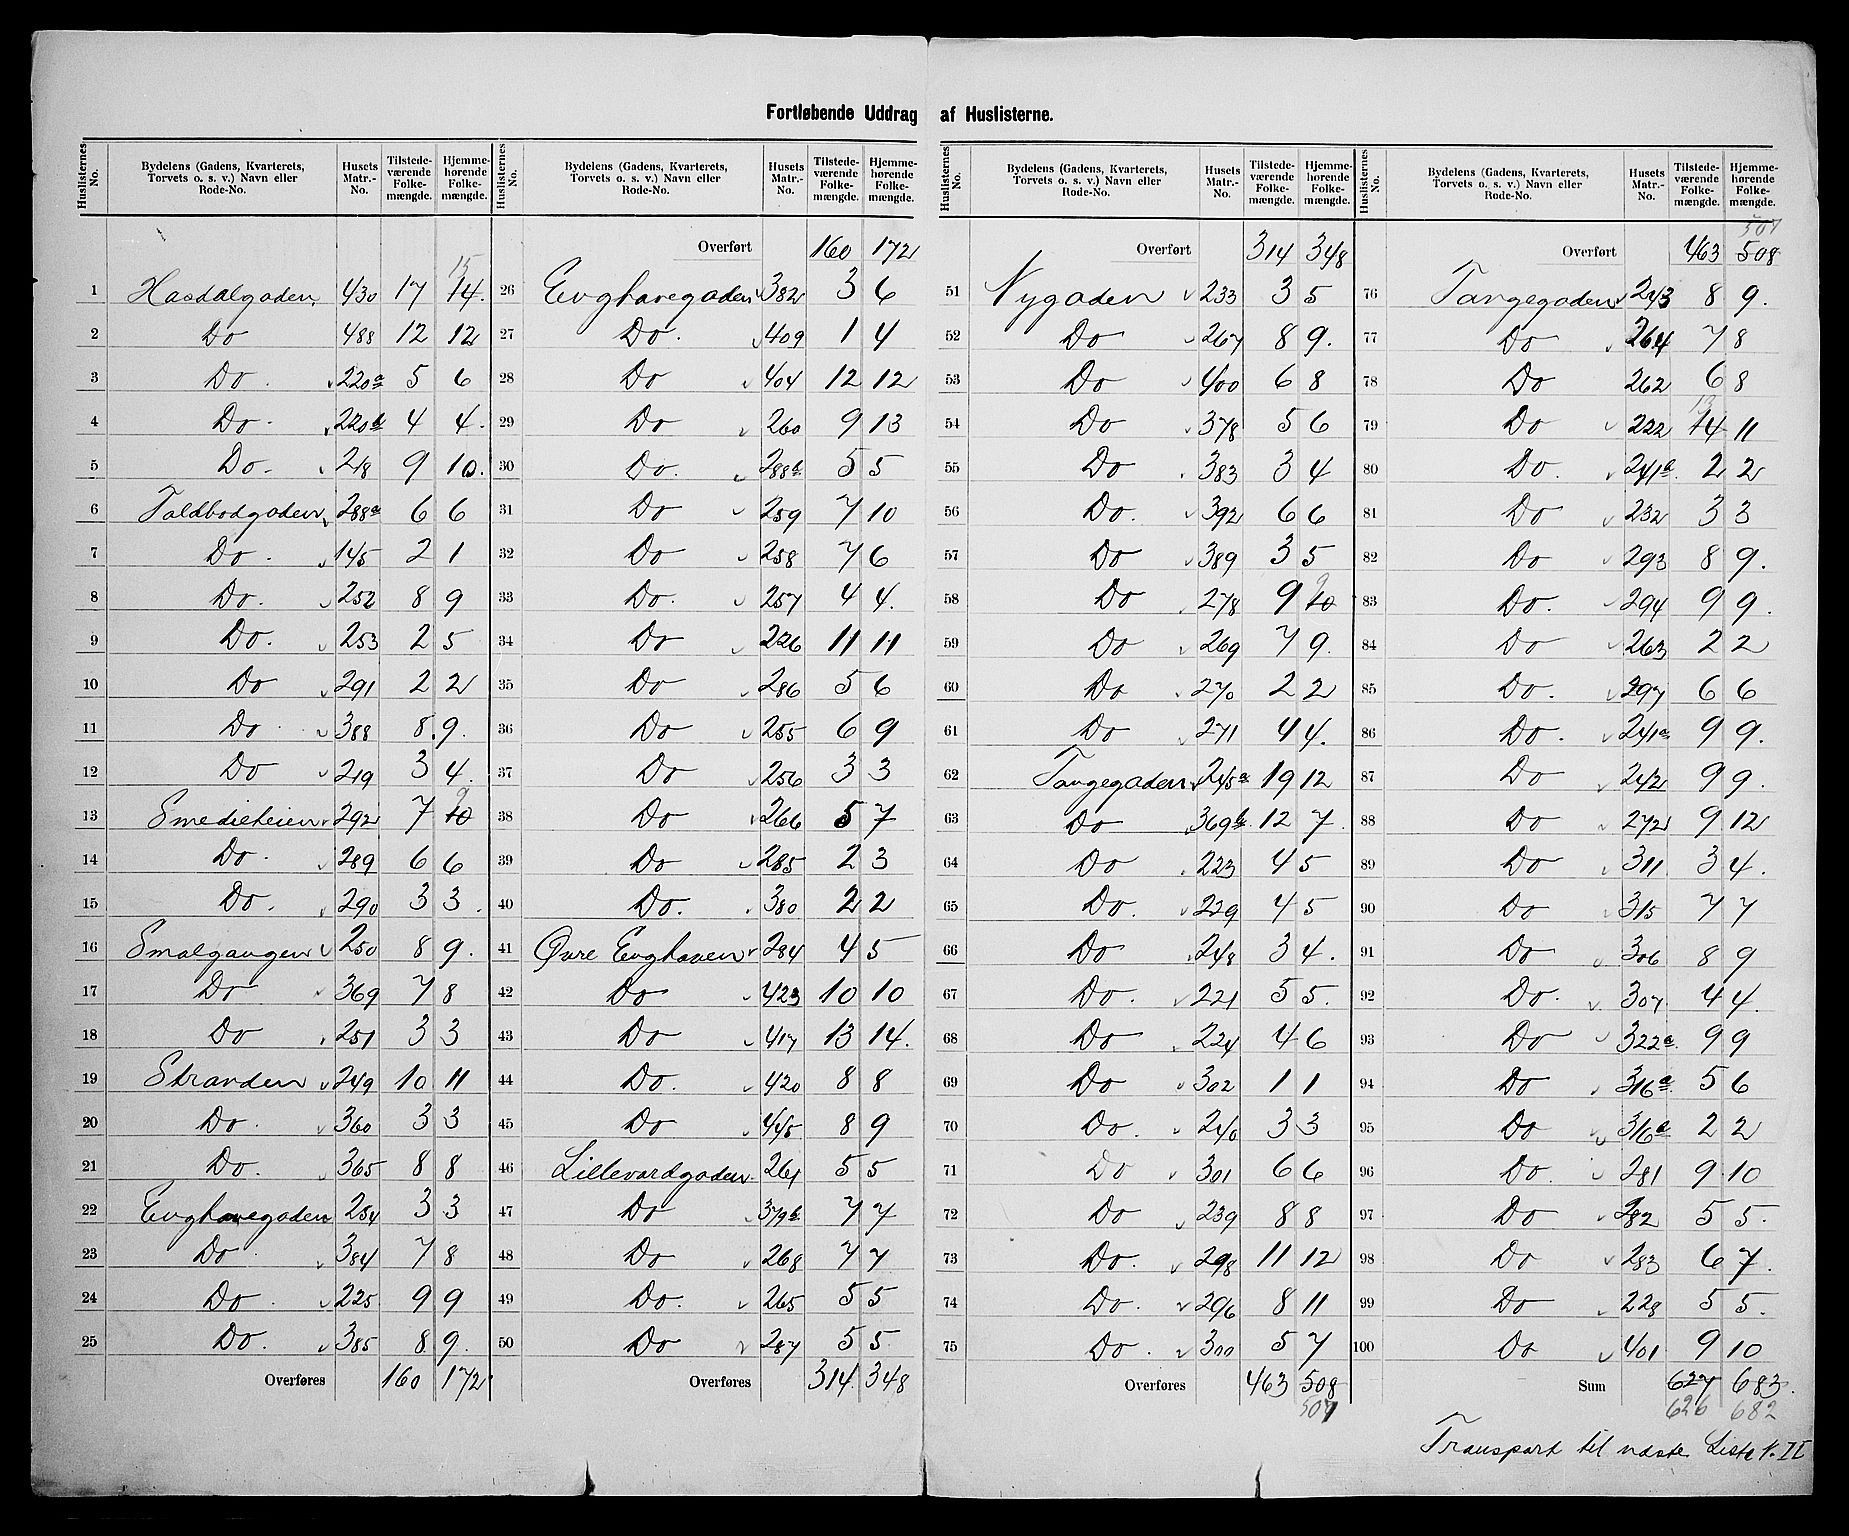 Fortløbende Uddrag af Huslisterne.
Huslisternes No. Bydelens (Gadens, Kvarterets, Torvets o. s. v.) Navn eller Rode-No. Husets Matr.-No. Tilstedeværende Folkemængde. Hjemmehørende Folkemængde.
1 Hasdalgaden. 430 17 14. 15
2 Do 488 12 12
3 Do. 220a 5 6
4 Do. 220b 4 4.
5 Do. 218 9 10.
6 Toldbodgaden 288a 6 6
7 Do. 145 2 1
8 Do. 252 8 9
9 Do. 253 2 5
10 Do 291 2 2
11 Do 388 8. 9.
12 Do 219 3 4.
13 Smedieheien 292 7 10 9
14 Do. 289 6 6
15 Do. 290 3 3.
16 Smalgangen 250 8 9.
17 Do 369 7 8
18 Do 251 3 3
19 Stranden 249 10 11
20 Do. 360 3 3
21 Do. 365 8 8
22 Enghavegaden 254 3 3
23 Do. 384 7 8
24 Do. 225 9 9
25 Do. 385 8 9.
Overføres 160 172
Huslisternes No. Bydelens (Gadens, Kvarterets, Torvets o. s. v.) Navn eller Rode-No. Husets Matr.-No. Tilstedeværende Folkemængde. Hjemmehørende Folkemængde.
Overført 160 172
26 Enghavegaden 382 3 6
27 Do. 409 1 4
28 Do 404 12 12
29 Do 260 9 13
30 Do. 288b 5 5
31 Do 259 7 10
32 Do 258 7 6
33 Do. 257 4 4.
34 Do 226 11 11
35 Do 286 5 6
36 Do 255 6 9
37 Do 256 3 3
38 Do 266 5 7
39 Do 285 2 3
40 Do. 380 2 2
41 Øvre Enghaven 284 4 5
42 Do 423 10 10
43 Do 417 13 14.
44 Do. 420 8 8
45 Do 445 8 9
46 Lillevardgaden 261 5 5
47 Do 379b 7 7
48 Do 268 7 7
49 Do. 265 5 5
50 Do 287 5 5
Overføres 314 348
Huslisternes No. Bydelens (Gadens, Kvarterets, Torvets o. s. v.) Navn eller Rode-No. Husets Matr.-No. Tilstedeværende Folkemængde. Hjemmehørende Folkemængde.
Overført 314 348
51 Nygaden 233 3 5
52 Do 267 8 9.
53 Do 400 6 8
54 Do 378 5 6
55 Do 383 3 4
56 Do. 392 6 6
57 Do 389 3 5
58 Do 278 9 10 9
59 Do 269 7 9.
60 Do 270 2 2
61 Do 271 4 4.
62 Tangegaden 245a 19 12
63 Do 369b. 12 7.
64 Do 223 4 5
65 Do. 229 4 5
66 Do 248 3 4.
67 Do. 221 5 5.
68 Do 224 4 6
69 Do 302 1 1
70 Do. 240 3 3
71 Do 301 6 6
72 Do 239 8 8
73 Do. 298 11 12
74 Do. 296 8 11
75 Do. 300 5 7
Overføres 463 508
507
Huslisternes No. Bydelens (Gadens, Kvarterets, Torvets o. s. v.) Navn eller Rode-No. Husets Matr.-No. Tilstedeværende Folkemængde. Hjemmehørende Folkemængde.
507
Overført 463 508
76 Tangegaden 243 8 9.
77 Do 264 7 8
78 Do 262 6 8
79 Do 222 14 13 11
80 Do. 241a. 2 2
81 Do 232 3 3
82 Do 293 8 9.
83 Do. 294 9 9.
84 Do 263 2 2
85 Do. 297 6 6
86 Do. 241a 9 9.
87 Do 242 9 9.
88 Do 272 9 12
89 Do 311 3 4.
90 Do 315 7 7
91 Do 306 8 9
92 Do. 307 4 4.
93 Do 322a. 9 9
94 Do 316a 5 6
95 Do 316a 2 2
96 Do. 281 9 10
97 Do 282 5 5.
98 Do 283 6 7.
99 Do 228 5 5.
100 Do 401 9 10
Sum 627 683.
626 682
Transport til næste Liste N. II